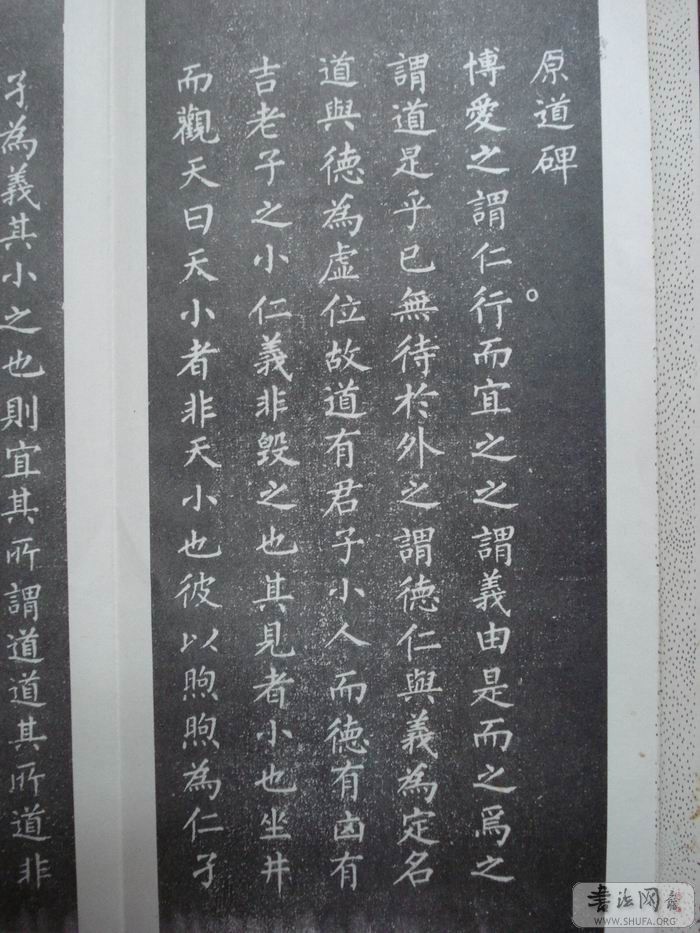 原道碑
博愛之謂仁行而宜之之謂義由是而之焉之
謂道足乎已無待於外之謂德仁與義為定名
道與德為虛位故道有君子小人而德有凶有
吉老子之小仁義非毀之也其見者小也坐井
而觀天曰天小者非天小也彼以煦煦為仁孑
孑為義其小之也則宜其所謂道道其所道非
书法网
WWW.SHUFA.ORG